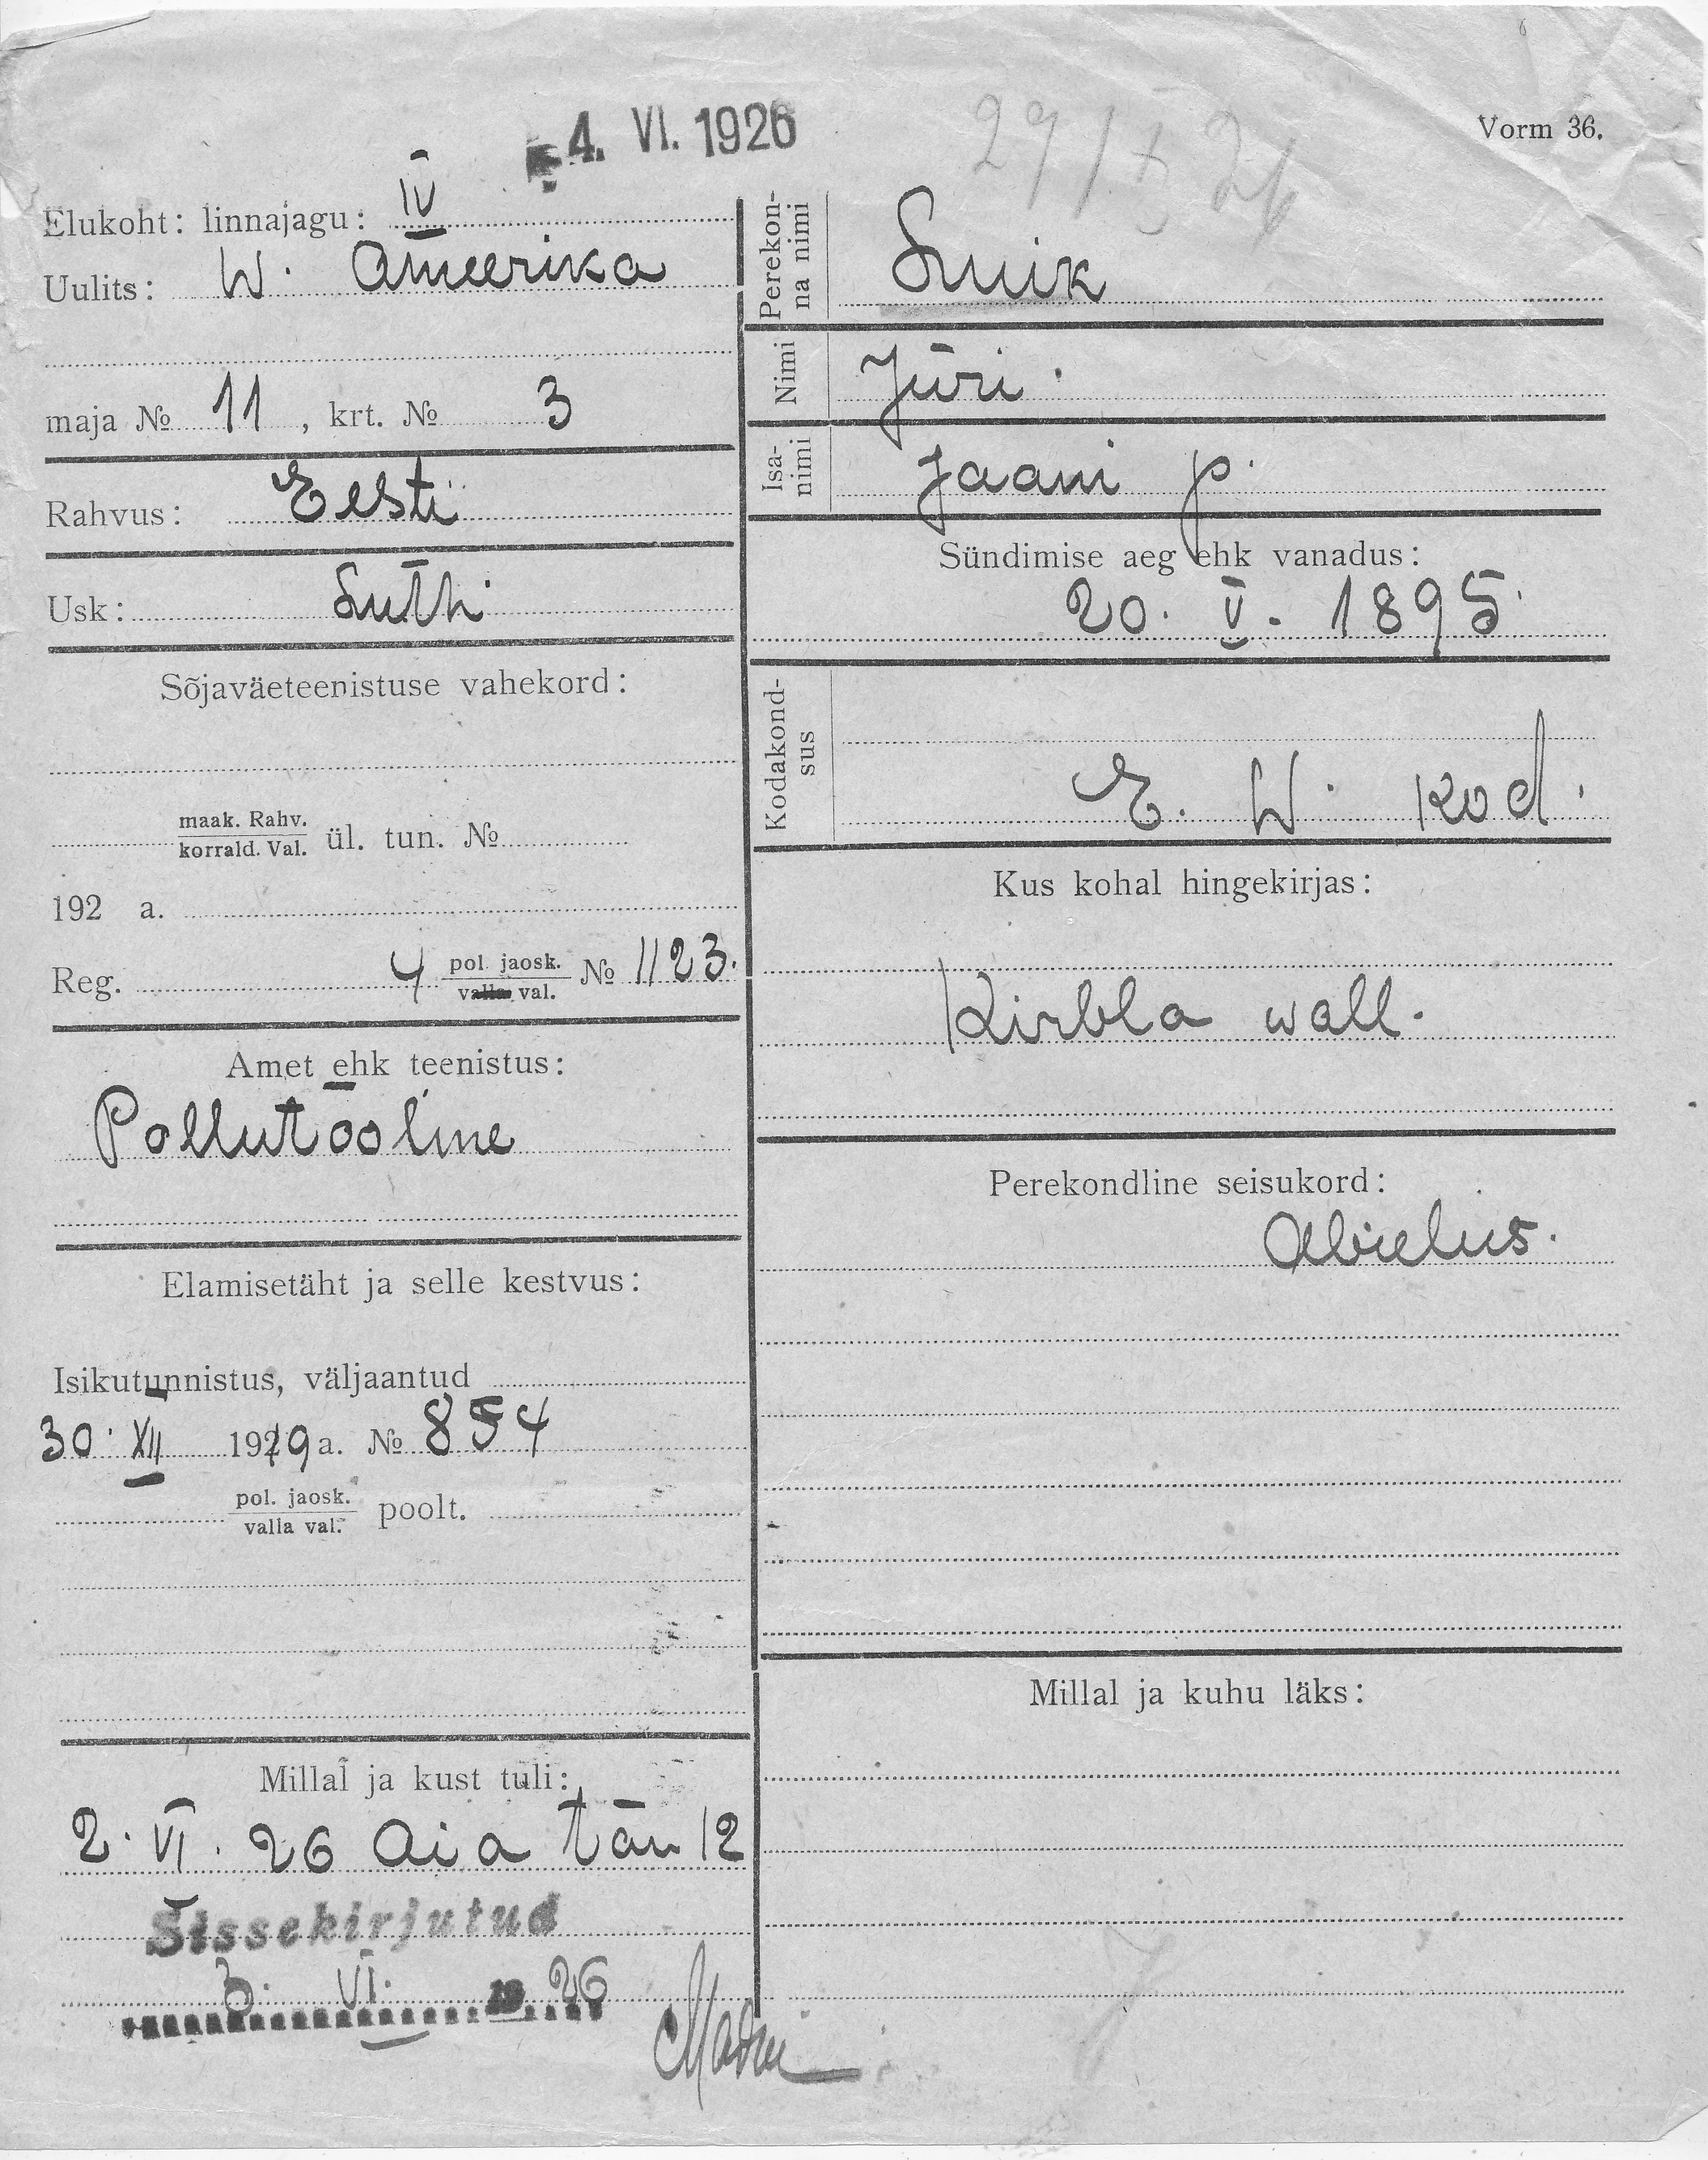 4. VI. 1926
Vorm 36.
Elukoht: linnajagu: IV
Uulits: W. Ameerika
maja № 11, krt. № 3
Rahvus: Eesti
Usk: Luth.
Sõjaväeteenistuse vahekord:
maak. Rahv.
korrald. Val. ül. tun. №
192 a.
Reg. 4 pol. jaosk. № 1123.
valla val.
Amet ehk teenistus:
Pollutooline
Elamisetäht ja selle kestvus:
Isikutunnistus, väljaantud
30. XII 1919 a. № 854
pol. jaosk.
valla val. poolt.
Millal ja kust tuli:
2. VI. 26 Aia tän 12
Sissekirjutud
3. VI. 1926
Perekon-
na nimi
Luik
Nimi
Jüri.
Isa-
nimi
Jaani p.
Sündimise aeg ehk vanadus:
20. V. 1895.
Kodakond-
sus
E. W. kod.
Kus kohal hingekirjas:
Kirbla wall.
Perekondline seisukord:
Abielus.
Millal ja kuhu läks: